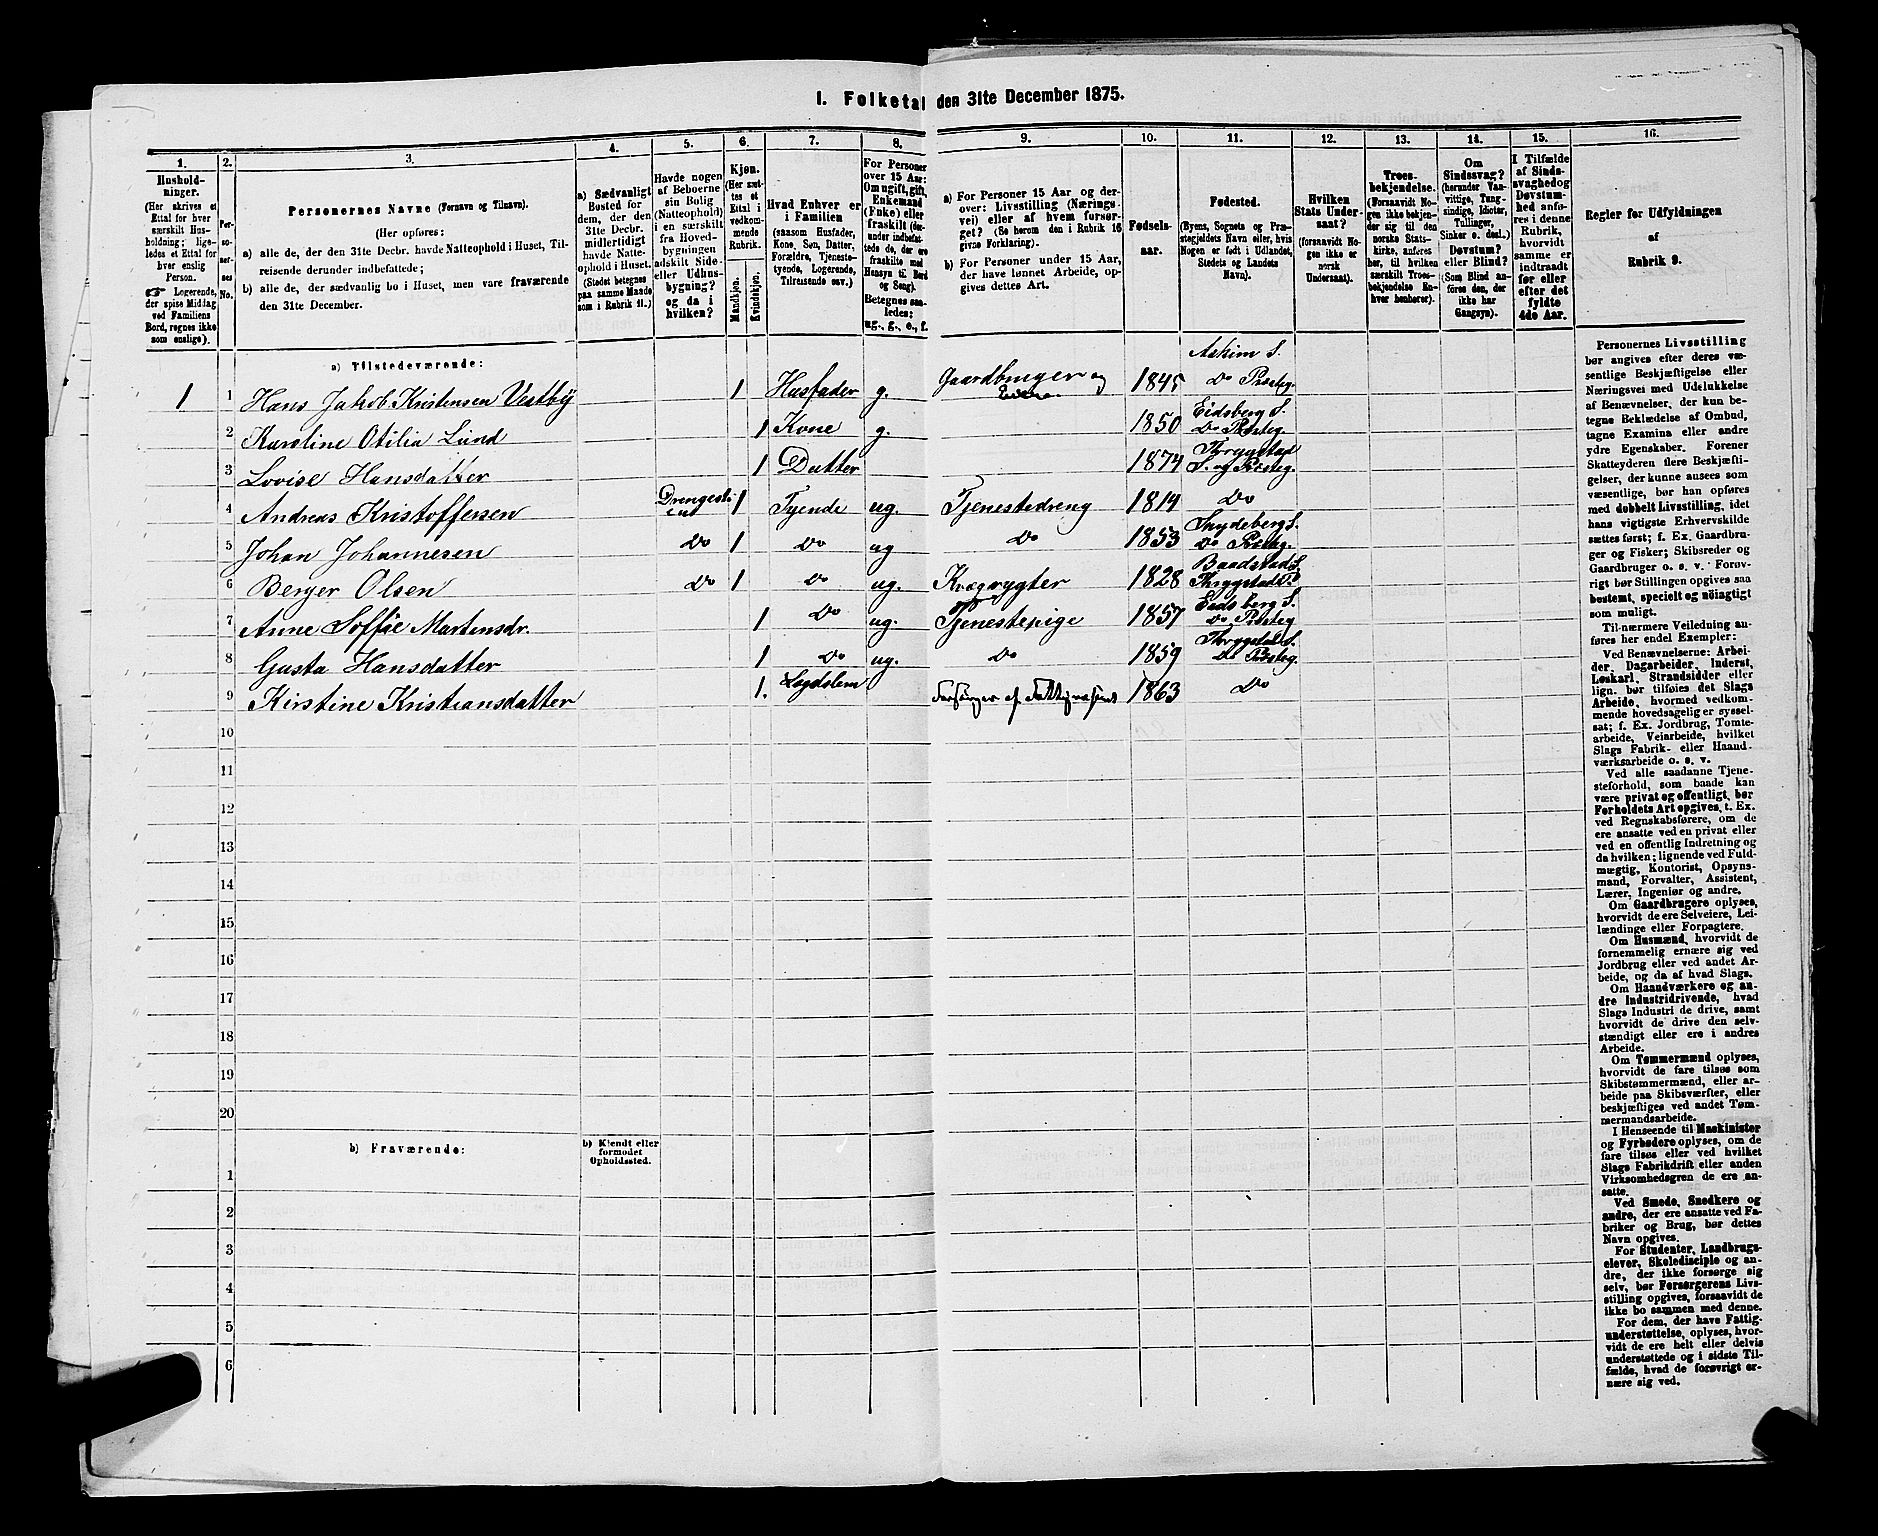 1. Folketal den 31te December 1875.
1. 2. 3. 4. 5. 6. 7. 8. 9. 10. 11. 12. 13. 14. 15. 16.
Hushold-
ninger.
(Her skrives et
Ettal for hver
særskilt Hus-
holdning; lige-
ledes et Ettal for
hver enslig
Person.
☞ Logerende,
der spise Middag
ved Familiens
Bord, regnes ikke
som enslige).
Per-
so-
ner-
nes
No.
Personernes Navne (Fornavn og Tilnavn).
(Her opføres:
a) alle de, der den 31te Decbr. havde Natteophold i Huset, Til-
reisende derunder indbefattede;
b) alle de, der sædvanlig bo i Huset, men vare fraværende
den 31te December.
a) Sædvanligt
Bosted for
dem, der den
31te Decbr.
midlertidigt
havde Natte-
ophold i Huset.
(Stedet betegnes
paa samme Maade
som i Rubrik 11.)
Havde nogen
af Beboerne
sin Bolig
(Natteophold)
i en særskilt
fra Hoved-
bygningen
adskilt Side-
eller Udhus-
bygning?
og da i
hvilken?
Kjøn.
(Her sæt-
tes et
Ettal i
vedkom-
mende
Rubrik.
Mandkjøn.
Kvindekjøn.
Hvad Enhver er
i Familien
(saasom Husfader,
Kone, Søn, Datter,
Forældre, Tjeneste-
tyende, Logerende,
Tilreisende osv.)
For Personer
over 15 Aar:
Om ugift, gift,
Enkemand
(Enke) eller
fraskilt (der-
under indbefat-
tede de, der ere
fraskilte med
Hensyn til Bord
og Seng).
Betegnes saa-
ledes:
ug., g., e., f.
a) For Personer 15 Aar og der-
over: Livsstilling (Nærings-
vei) eller af hvem forsør-
get? (Se herom den i Rubrik 16
givne Forklaring).
b) For Personer under 15 Aar,
der have lønnet Arbeide, op-
gives dettes Art.
Fødsels-
aar.
Fødested.
(Byens, Sognets og Præ-
stegjeldets Navn, eller, hvis
Nogen er født i Udlandet,
Stedets og Landets
Navn).
Hvilken
Stats Under-
saat?
(forsaavidt No-
gen ikke er
norsk
Undersaat).
Troes-
bekjendelse.
(Forsaavidt No-
gen ikke bekjen-
der sig til den
norske Stats-
kirke, anføres
her, til hvilken
særskilt Troes-
bekjendelse En-
hver henhører).
Om
Sindssvag?
(herunder Van-
vittige, Tung-
sindige, Idioter,
Tullinger,
Sinker o. desl.)
Døvstum?
eller Blind?
(Som Blind an-
føres den, der
ikke har
Gangsyn).
I Tilfælde
af Sinds-
svaghed og
Døvstum-
hed anfø-
res i denne
Rubrik,
hvorvidt
samme er
indtraadt
før eller
efter det
fyldte
4de Aar.
Regler for Udfyldningen
af
Rubrik 9.
a) Tilstedeværende:
Askim S.
1 1 Hans Jakob Kristensen Vestby 1 Husfader g. Gaardbruger og 1845 Do Præsteg.
Eidsberg S.
2 Karstine Otilia Lund 1 Kone g. 1850 Do Præsteg.
Thrygstad
3 Lovise Hansdatter 1 Datter 1874 S. og Præsteg.
4 Andreas Kristoffersen 1 Tyende ug. Tjenestedreng 1814 Do
5 Johan Johannesen Do 1 Do ug Do 1853 Do Præsteg.
Baadstad S.
6 Berger Olsen Do 1 Do ug. Kvægrygter 1828 Thrygstad P.
Eidsberg S.
7 Anne Soffie Martensdr. 1 Do ug. Tjenestepige 1857 Do Præsteg
8 Gusta Hansdatter 1 Do ug. Do 1859 Do Præsteg.
9 Kirstine Kristiansdatter 1. Lægdslem 1863 Do
10
11
12
13
14
15
16
17
18
19
20
b) Fraværende:
b) Kjendt eller
formodet
Opholdssted.
1
2
3
4
5
6
Personernes Livsstilling
bør angives efter deres væ-
sentlige Beskjæftigelse eller
Næringsvei med Udelukkelse
af Benævnelser, der kun be-
tegne Beklædelse af Ombud,
tagne Examina eller andre
ydre Egenskaber. Forener
Skatteyderen flere Beskjæfti-
gelser, der kunne ansees som
væsentlige, bør han opføres
med dobbelt Livsstilling, idet
hans vigtigste Erhvervskilde
sættes først; f. Ex. Gaardbru-
ger og Fisker; Skibsreder og
Gaardbruger o. s. v. Forøv-
rigt bør Stillingen opgives saa
bestemt, specielt og nøiagtigt
som muligt.
Til nærmere Veiledning an-
føres her endel Exempler:
Ved Benævnelserne: Arbei-
der, Dagarbeider, Inderst,
Løskarl, Strandsidder eller
lign. bør tilføies det Slags
Arbeide, hvormed vedkom-
mende hovedsagelig er syssel-
sat; f. Ex. Jordbrug, Tomte-
arbeide, Veiarbeide, hvilket
Slags Fabrik- eller Haand-
værksarbeide o. s. v.
Ved alle saadanne Tjene-
steforhold, som baade kan
være privat og offentligt, bør
Forholdets Art opgives, t. Ex.
ved Regnskabsførere, om de
ere ansatte ved en privat eller
ved en offentlig Indretning og
da hvilken; lignende ved Fuld-
mægtig, Kontorist, Opsyns-
mand, Forvalter, Assistent,
Lærer, Ingeniør og andre.
Om Gaardbrugere oplyses,
hvorvidt de ere Selveiere, Lei-
lændinge eller Forpagtere.
Om Husmænd, hvorvidt de
fornemmelig ernære sig ved
Jordbrug eller ved andet Ar-
beide, og da af hvad Slags.
Om Haandværkere og an-
dre Industridrivende, hvad
Slags Industri de drive, samt
hvorvidt de drive den selv-
stændigt eller ere i andres
Arbeide.
Om Tømmermænd oplyses,
hvorvidt de fare tilsøs som
Skibstømmermænd, eller ar-
beide paa Skibsværfter, eller
beskjæftiges ved andet Tøm-
mermandsarbeide.
I Henseende til Maskinister
og Fyrbødere oplyses, om de
fare tilsøs eller ved hvilket
Slags Fabrikdrift eller anden
Virksomhedsgren de ere an-
satte.
Ved Smede, Snedkere og
andre, der ere ansatte ved Fa-
briker og Brug, bør dettes
Navn opgives.
For Studenter, Landbrugs-
elever, Skoledisciple og an-
dre, der ikke forsørge sig
selv, bør Forsørgerens Livs-
stilling opgives, forsaavidt de
ikke bo sammen med denne.
For dem, der have Fattig-
understøttelse, oplyses, hvor-
vidt de ere helt eller delvis
understøttede og i sidste Til-
fælde, hvad de forøvrigt er-
nære sig ved.